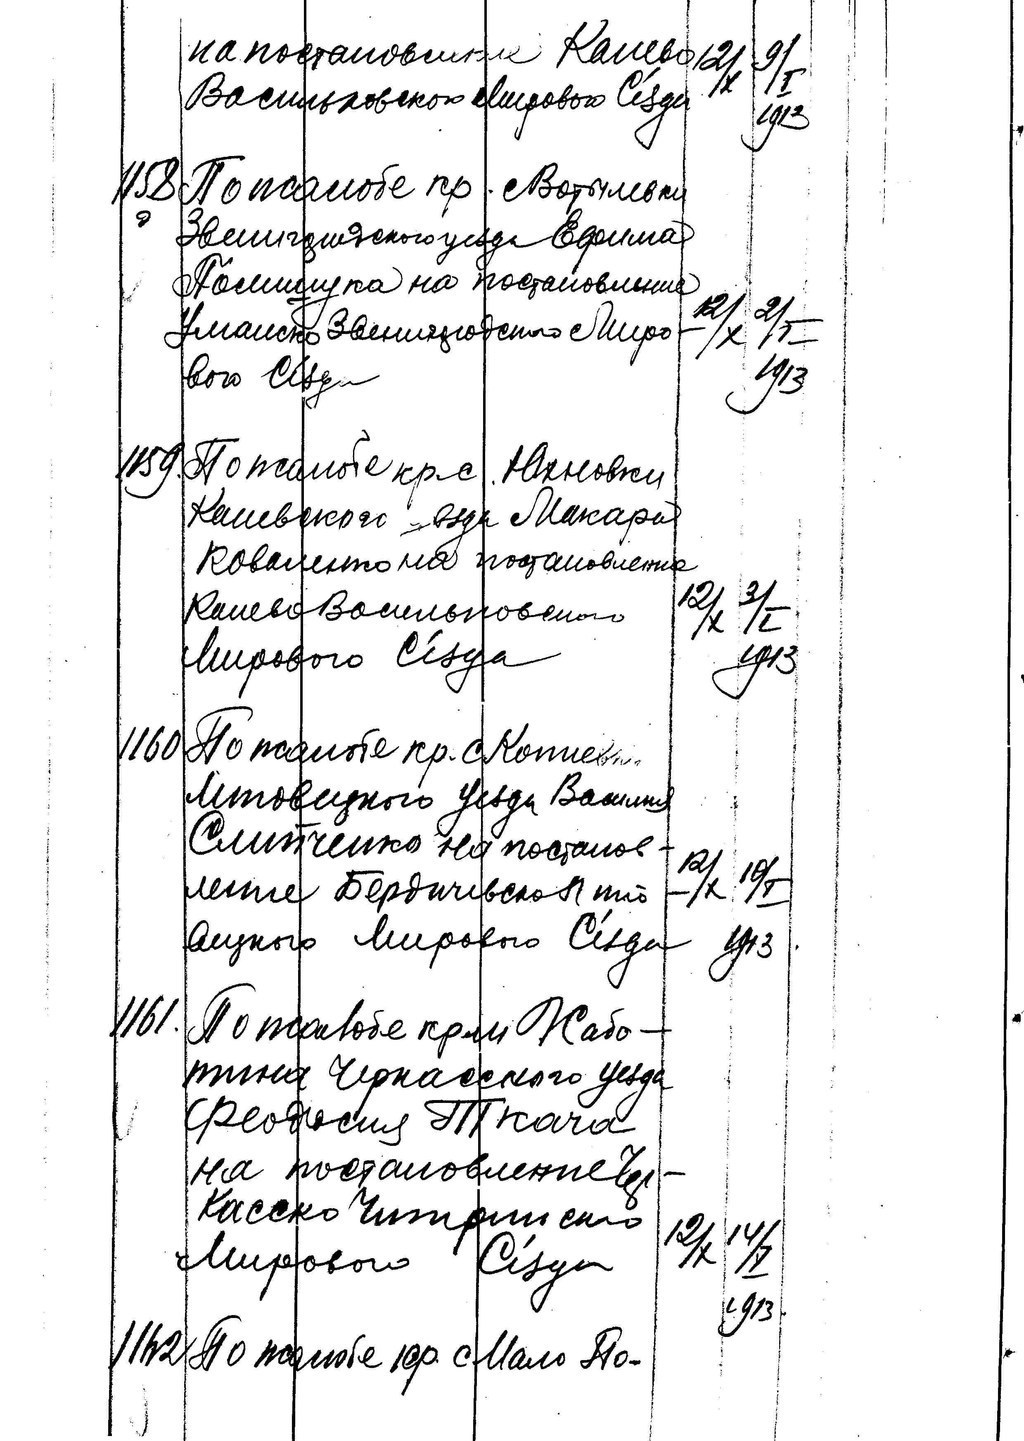 на постановление Канево 12/X 9/I
Васильковского Мирового Съезда 1913
1158 По жалобе кр. с Вотылевки
Звенигородского уезда Ефима
Полищука на постановление
Уманско Звенигородского Миро- 12/X 2/I
вого Съезда 1913
1159. По жалобе кр. с. Юхновки
Каневского уезда Макара
Коваленко на постановление
Канево Васильковского 12/X 3/I
Мирового Съезда 1913
1160 По жалобе кр. с
Липовецкого уезда Василия
Слитченко на постанов-
ление Бердичевско Липо- 12/X 10/I
вецкого Мирового Съезда 1913.
1161. По жалобе кр. м Жабо-
тина Черкасского уезда
Феодосия Ткача
на постановление Чер-
касско Чигиринского 12/X 14/I
Мирового Съезда 1913.
1162 По жалобе кр. с Мало По-